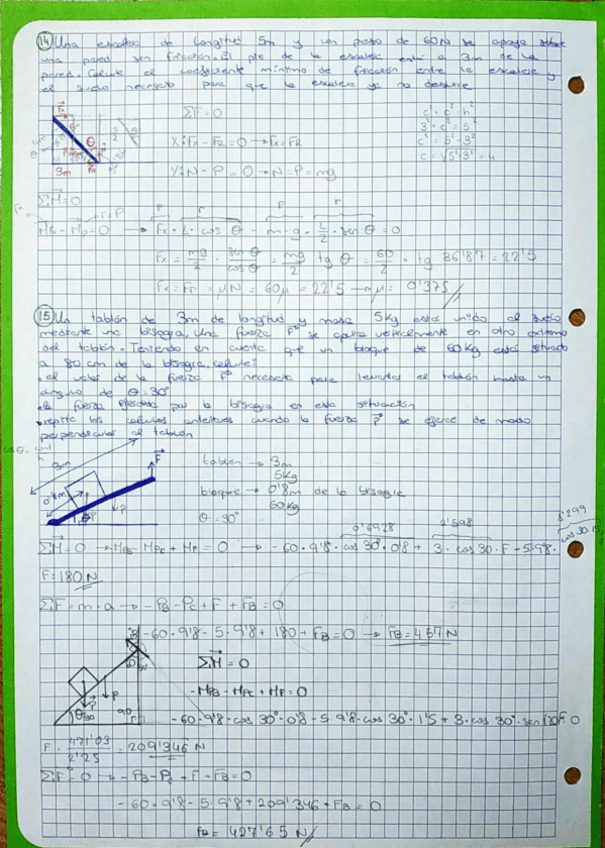 14 Una escalera de longitud 5m y un peso de 60N se apoya sobre
una pared sin fricción. El pie de la escalera está a 3m de la
pared. Calcule el coeficiente mínimo de fricción entre la escalera y
el suelo necesario para que la escalera no se deslice
ΣF=0
X: Fx - FR = 0 → Fx = FR
Y: N - P = 0 → N = P = mg
c² + c² = h²
3² + c² = 5²
c² = 5² - 3²
c = √5² 3² = 4
3m
ΣM=0
Fx · L · cos θ - m · g · L/2 · sen θ = 0
Fx = mg/2 · sen θ/cos θ = mg/2 tg θ = 60/2 · tg 36'87 = 22'5
Fx = Fr = μN = 60μ = 22'5 → μ = 0'375
15 Un tablón de 3m de longitud y masa 5Kg está unido al suelo
mediante una bisagra. Una fuerza F se aplica verticalmente en otro extremo
del tablón. Teniendo en cuenta que un bloque de 60Kg está situado
a 80 cm de la bisagra, calcule:
· el valor de la fuerza F necesaria para levantar el tablón hasta un
ángulo de θ=30°
· la fuerza ejercida por la bisagra en esta situación
· repite los cálculos anteriores cuando la fuerza F se ejerce de modo
perpendicular al tablón
3m
0'8m
F
P
tablón → 3m
5Kg
bloque → 0'8m de la bisagra
60Kg
θ = 30°
0'6928
2'598
1'299
ΣM = 0 → -MPB - MPC + MF = 0 → -60·9'8·cos 30°·0'8 + 3·cos 30·F - 5·9'8· cos 30·1'5
F = 180 N
ΣF = m·a → -PB - PC + F + FB = 0
-60·9'8 - 5·9'8 + 180 + FB = 0 → FB = 457 N
ΣM = 0
-MPB - MPC + MF = 0
-60·9'8·cos 30°·0'8 - 5·9'8·cos 30°·1'5 + 3·cos 30°·sen 120 F = 0
P
30
90
F = 471'03/2'25 = 209'346 N
ΣF = 0 → -PB - PC + F + FB = 0
-60·9'8 - 5·9'8 + 209'346 + FB = 0
FB = 427'65 N